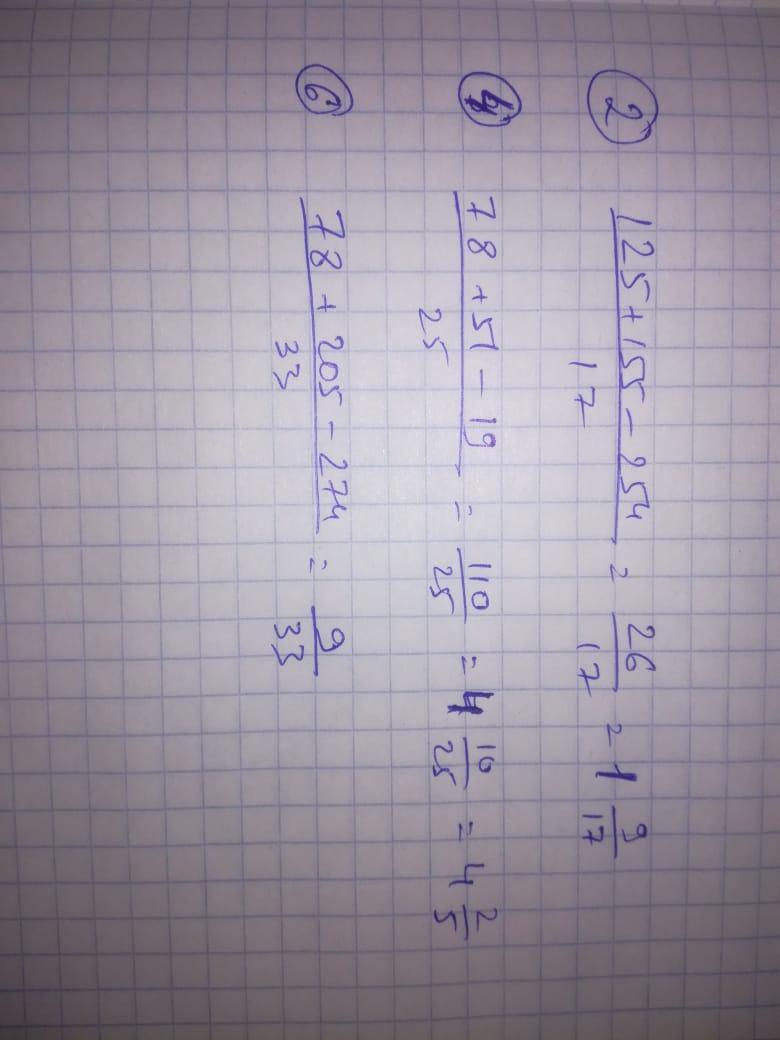 ② (125+155-254)/17 = 26/17 = 1 9/17
④ (78+51-19)/25 = 110/25 = 4 10/25 = 4 2/5
⑥ (78+205-274)/33 = 9/33